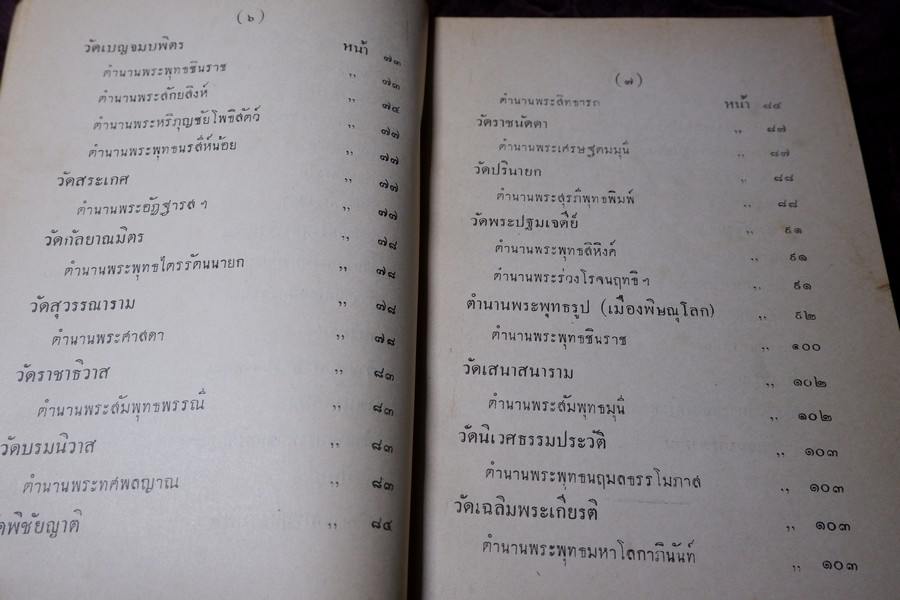 (๖)
วัดเบญจมบพิตร หน้า ๗๓
ตำนานพระพุทธชินราช ,, ๗๓
ตำนานพระศักยสิงห์ ,, ๗๔
ตำนานพระหริภุญชัยโพธิสัตว์ ,, ๗๗
ตำนานพระพุทธนรสีห์น้อย ,, ๗๗
วัดสระเกศ ,, ๗๗
ตำนานพระอัฏฐารส ฯ ,, ๗๗
วัดกัลยาณมิตร ,, ๗๘
ตำนานพระพุทธไตรรัตนนายก ,, ๗๘
วัดสุวรรณาราม ,, ๗๘
ตำนานพระศาสดา ,, ๗๘
วัดราชาธิวาส ,, ๘๓
ตำนานพระสัมพุทธพรรณี ,, ๘๓
วัดบรมนิวาส ,, ๘๓
ตำนานพระทศพลญาณ ,, ๘๓
วัดพิชัยญาติ ,, ๘๔
(๗)
ตำนานพระสิทธารถ หน้า ๘๔
วัดราชนัดดา ,, ๘๗
ตำนานพระเศรษฐตมมุนี ,, ๘๗
วัดปรินายก ,, ๘๘
ตำนานพระสุรภีพุทธพิมพ์ ,, ๘๘
วัดพระปฐมเจดีย์ ,, ๙๑
ตำนานพระพุทธสิหิงค์ ,, ๙๑
ตำนานพระร่วงโรจนฤทธิ ฯ ,, ๙๑
ตำนานพระพุทธรูป (เมืองพิษณุโลก) ,, ๙๒
ตำนานพระพุทธชินราช ,, ๑๐๐
วัดเสนาสนาราม ,, ๑๐๒
ตำนานพระสัมพุทธมุนี ,, ๑๐๒
วัดนิเวศธรรมประวัติ ,, ๑๐๓
ตำนานพระพุทธนฤมลธรรโมภาส ,, ๑๐๓
วัดเฉลิมพระเกียรติ ,, ๑๐๓
ตำนานพระพุทธมหาโลกาภินันท์ ,, ๑๐๓